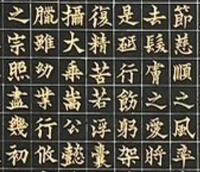 節慈順之風卒
去髮膚之愛將
是行飭躬架
復精苦若浮囊
攝大乘嵩公懿
臘雖幼業行攸
之宗照盡幾初